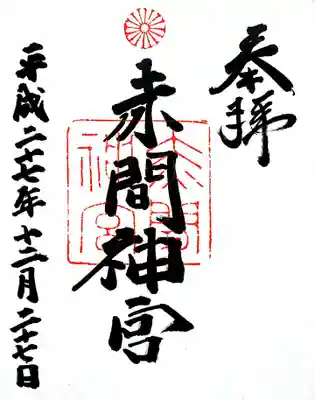 奉拝
赤間神宮
平成二十七年十二月二十七日
赤間神宮